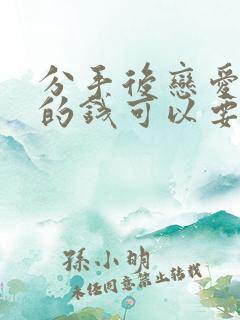 分手後戀愛
的錢可以要
孫小明
未經同意禁止轉載